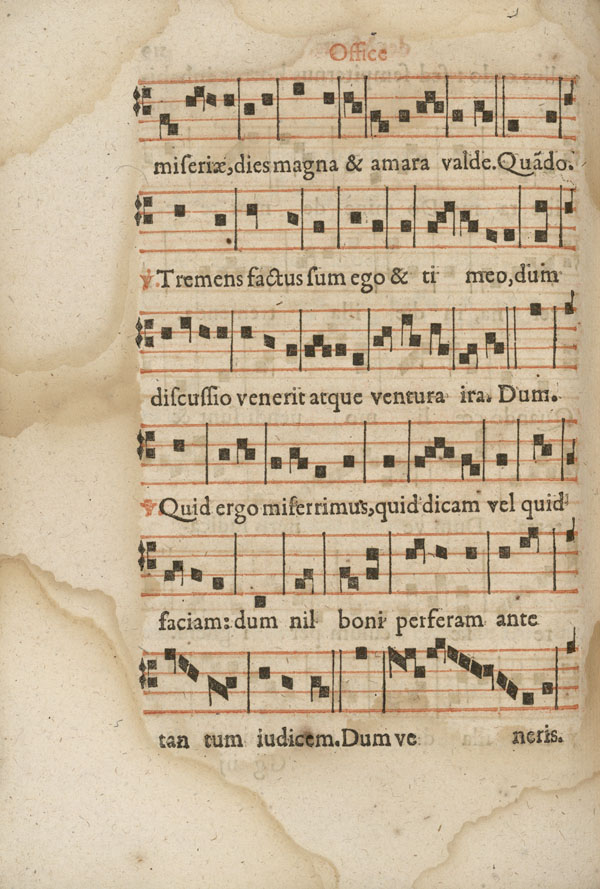 Office
miſeriæ, dies magna & amara valde. Quãdo.
℣. Tremens factus ſum ego & ti meo, dum
diſcuſſio venerit atque ventura ira. Dum.
℣. Quid ergo miſerrimus, quid dicam vel quid
faciam: dum nil boni perferam ante
tan tum iudicem. Dum ve neris.